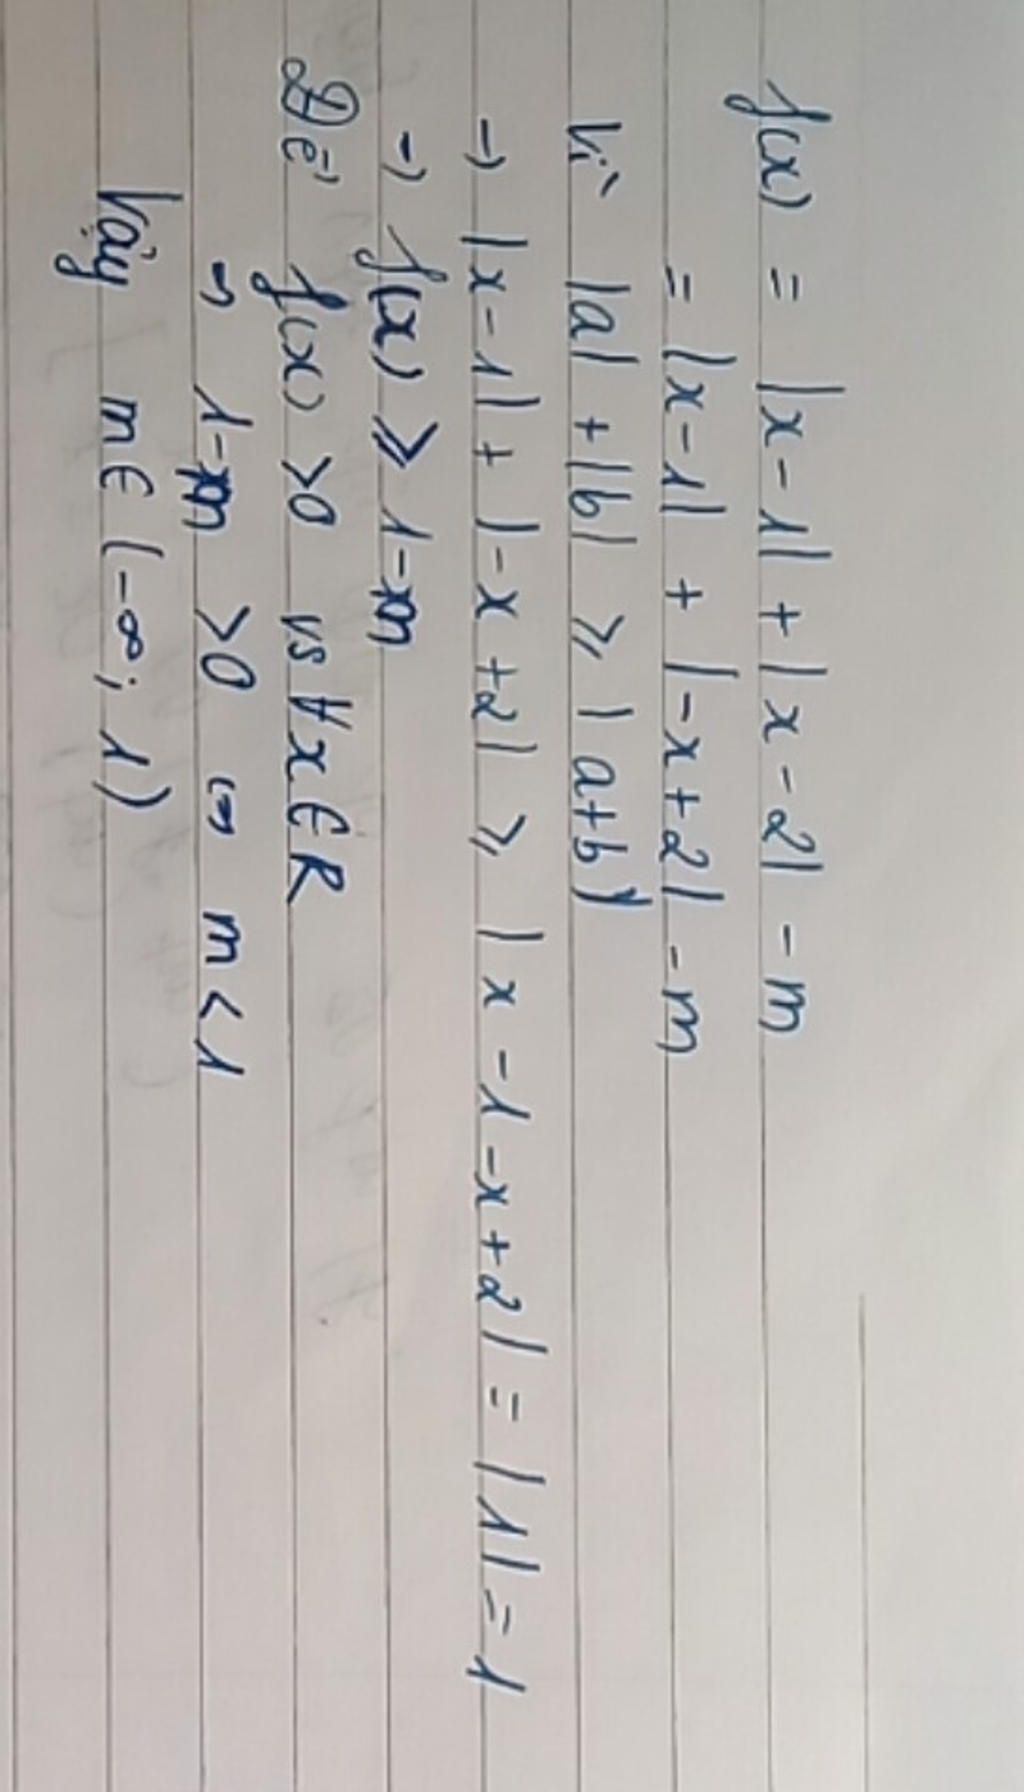 f(x) = |x-1| + |x-2| - m
= |x-1| + |-x+2| - m
Vì |a| + |b| ≥ |a+b|
→ |x-1| + |-x+2| ≥ |x-1-x+2| = |1| = 1
→ f(x) ≥ 1-m
Để f(x) >0 vs ∀x∈R
→ 1-m >0 ⇔ m<1
Vậy m∈ (-∞; 1)